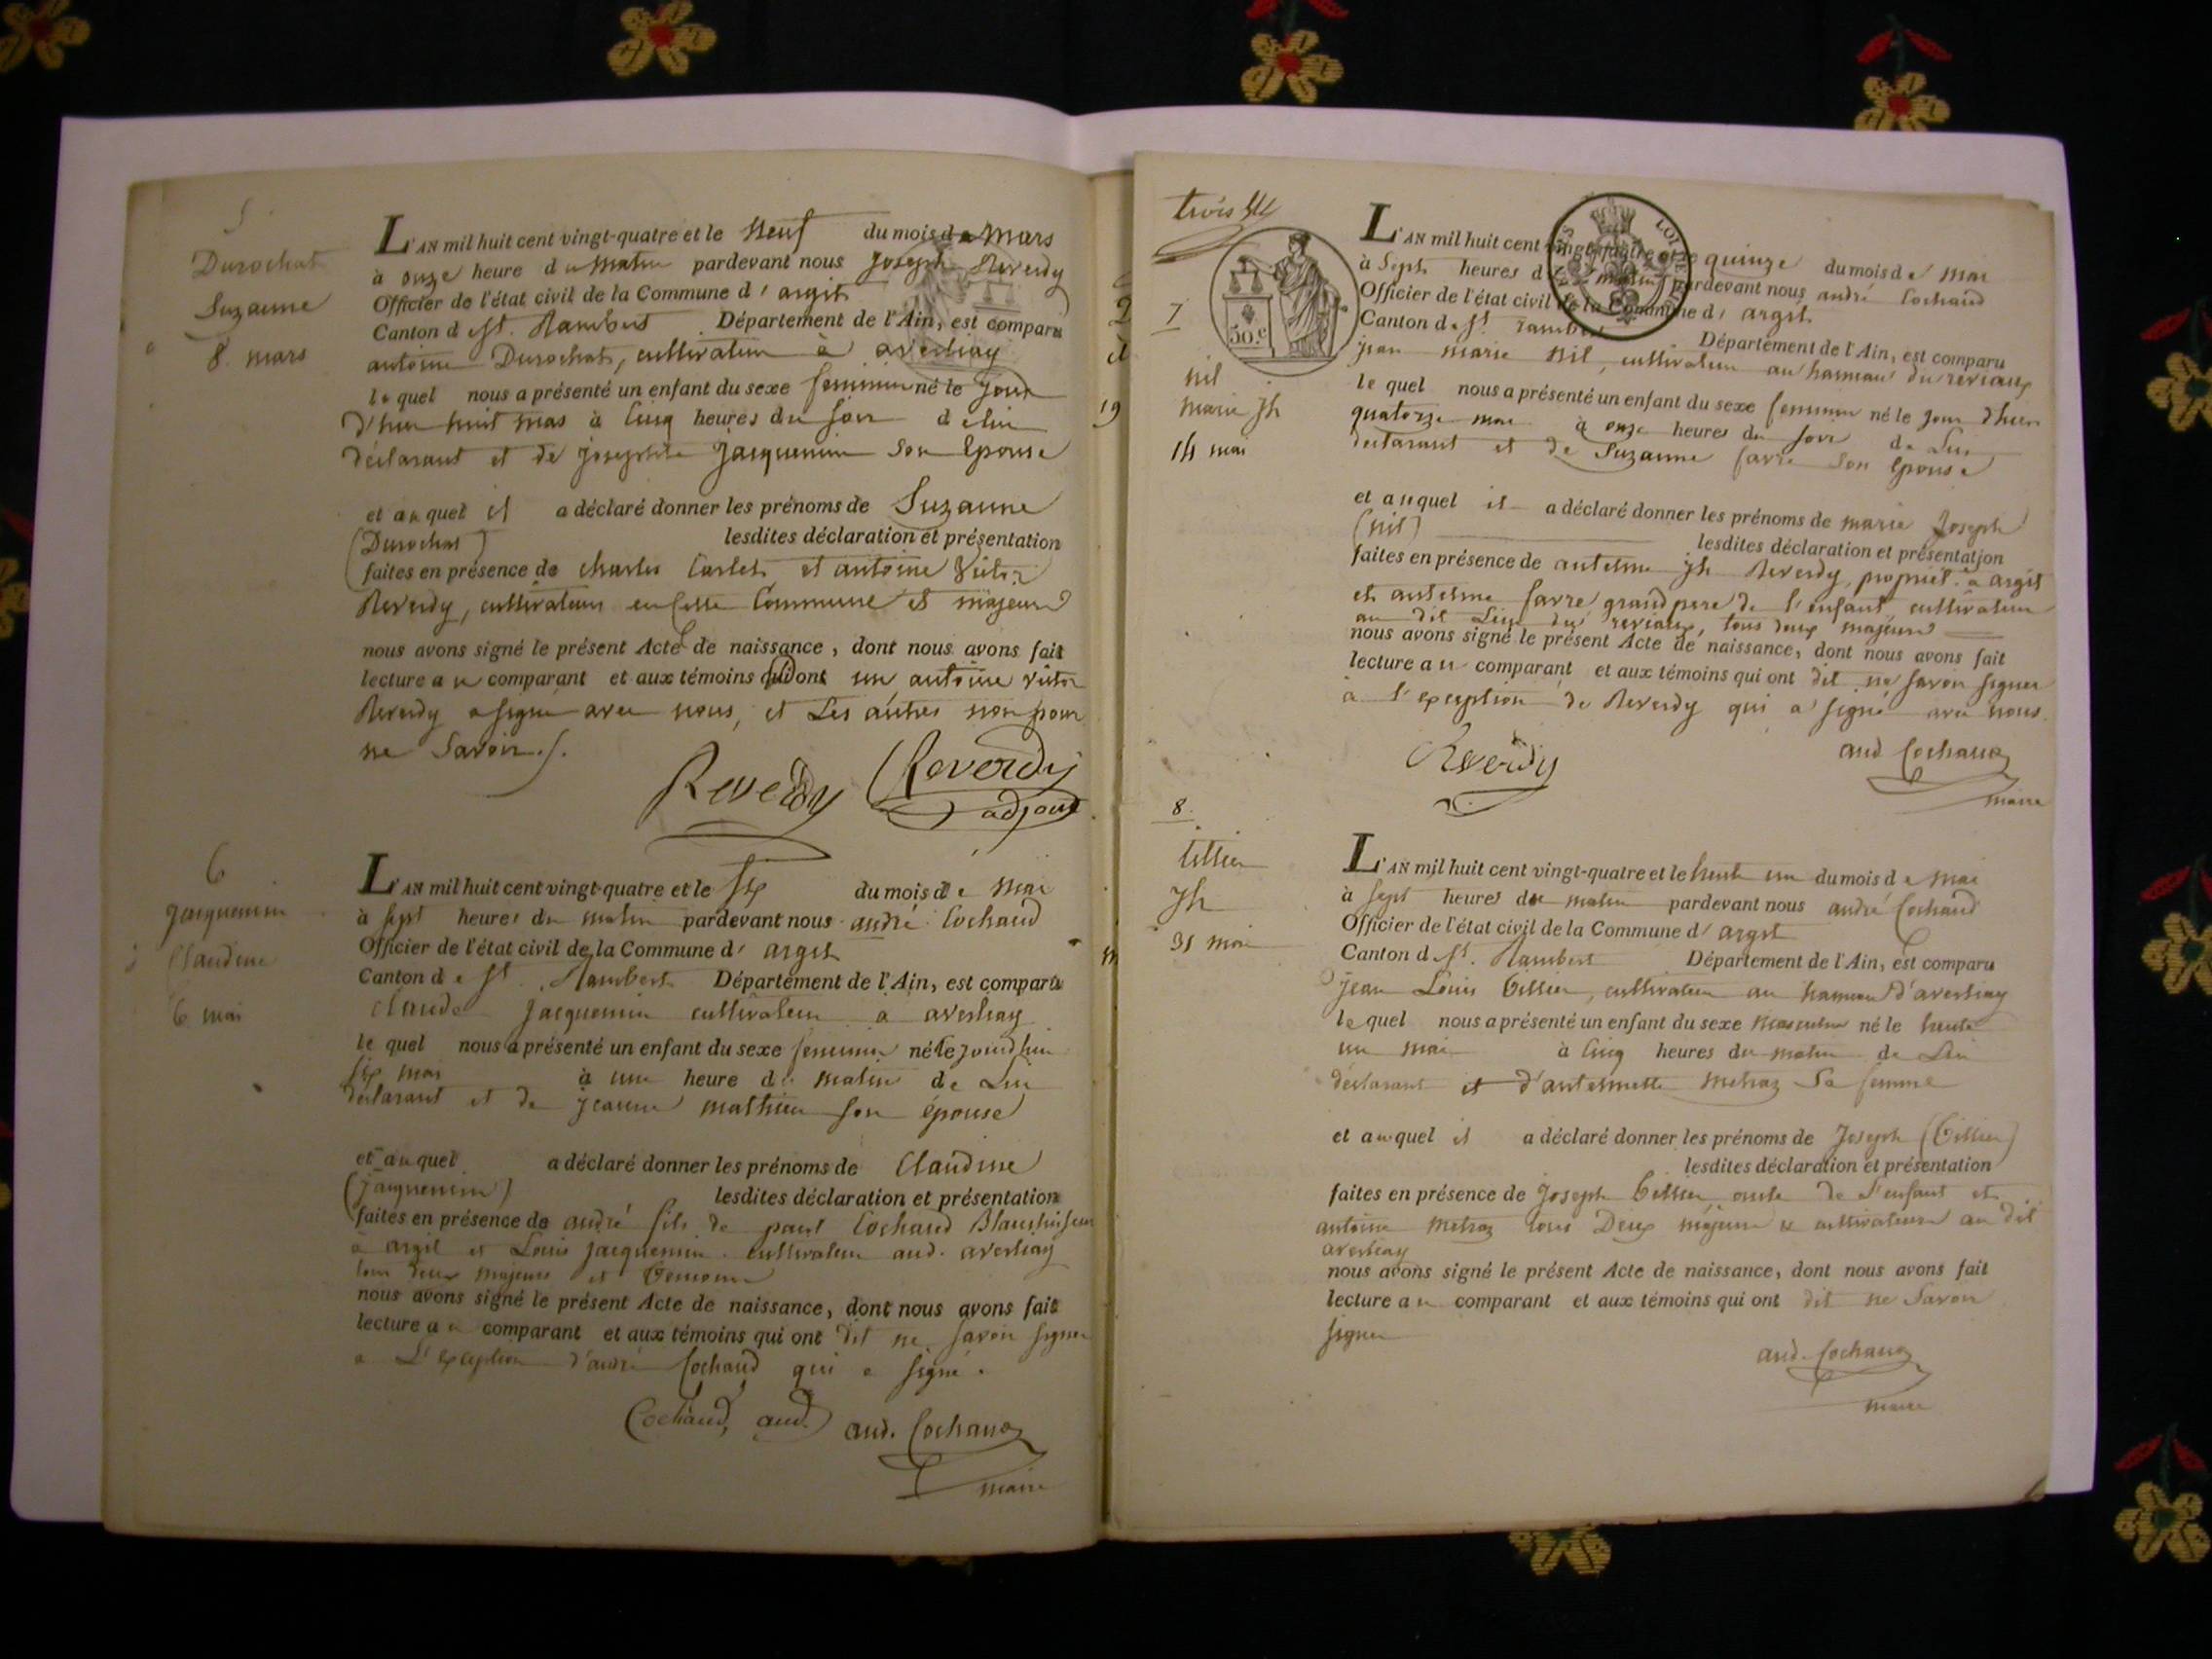 5.
Durochat
Suzanne
8. mars
L'AN mil huit cent vingt-quatre et le Neuf du mois de Mars
à onze heure du matin pardevant nous Joseph Reverdy
Officier de l'état civil de la Commune d' argit
Canton de St. Rambert Département de l'Ain, est comparu
antoine Durochat, cultivateur à averliay
lequel nous a présenté un enfant du sexe feminin né le jour
d'hier huit mas à cinq heures du soir de lui
déclarant et de josephte Jacquemin son Epouse
et auquel il a déclaré donner les prénoms de Suzanne
(Durochat) lesdites déclaration et présentation
faites en présence de charles Carlet et antoine Victor
Reverdy, cultivateurs en cette Commune et majeurs
nous avons signé le présent Acte de naissance, dont nous avons fait
lecture au comparant et aux témoins qui ont un antoine victor
Reverdy a signé avec nous, et Les autres non pour
ne Savoir./.
Reverdy Reverdy
adjoint
6
jacquemin
Claudine
6 mai
L'AN mil huit cent vingt-quatre et le six du mois de Mai
à sept heures du matin pardevant nous andré Cochaud
Officier de l'état civil de la Commune d' argit
Canton de St. Rambert Département de l'Ain, est comparu
claude Jacquemin cultivateur a averliay
lequel nous a présenté un enfant du sexe feminin né le jourd'hui
six mai à une heure du matin de Lui
déclarant et de jeanne mathieu son épouse
et auquel a déclaré donner les prénoms de Claudine
(jacquemin) lesdites déclaration et présentation
faites en présence de andré fils de paul Cochaud
à argit et Louis jacquemin cultivateur aud. averliay
tous deux majeurs et
nous avons signé le présent Acte de naissance, dont nous avons fait
lecture au comparant et aux témoins qui ont dit ne savoir signer
a L'exception d'andré Cochaud qui a signé.
Cochaud, and. and. Cochaud
maire
trois
50.c
LOI DE
7
nil
marie jh
14 mai
L'AN mil huit cent vingt-quatre et le quinze du mois de mai
à Sept heures du matin pardevant nous andré Cochaud
Officier de l'état civil de la Commune d' argit
Canton de St. rambert Département de l'Ain, est comparu
jean marie nil, cultivateur au hameau du reviaux
lequel nous a présenté un enfant du sexe feminin né le jour d'hier
quatorze mai à onze heures du soir de Lui
déclarant et de Suzanne favre son Epouse
et auquel il a déclaré donner les prénoms de marie Joseph
(nil) lesdites déclaration et présentation
faites en présence de antelme jh Reverdy, propriet. à argit
et antelme favre grand pere de l'enfant, cultivateur
au dit Lieu du reviaux, tous deux majeurs
nous avons signé le présent Acte de naissance, dont nous avons fait
lecture au comparant et aux témoins qui ont dit ne savoir signer
à l'exception de Reverdy qui a signé avec nous.
Reverdy and Cochaud
maire
8.
tillier
Jh
31 mai
L'AN mil huit cent vingt-quatre et le trente un du mois de mai
à sept heures du matin pardevant nous andré Cochaud
Officier de l'état civil de la Commune d' argit
Canton de St. Rambert Département de l'Ain, est comparu
jean Louis tillier, cultivateur au hameau d'averliay
lequel nous a présenté un enfant du sexe masculin né le trente
un mai à cinq heures du matin de Lui
déclarant et d'antelmette metraz Sa femme
et auquel il a déclaré donner les prénoms de Joseph (tillier)
lesdites déclaration et présentation
faites en présence de Joseph tillier oncle de l'enfant et
antoine metraz tous Deux majeurs et cultivateurs au dit
averliay
nous avons signé le présent Acte de naissance, dont nous avons fait
lecture au comparant et aux témoins qui ont dit ne Savoir
signer
and. Cochaud
maire